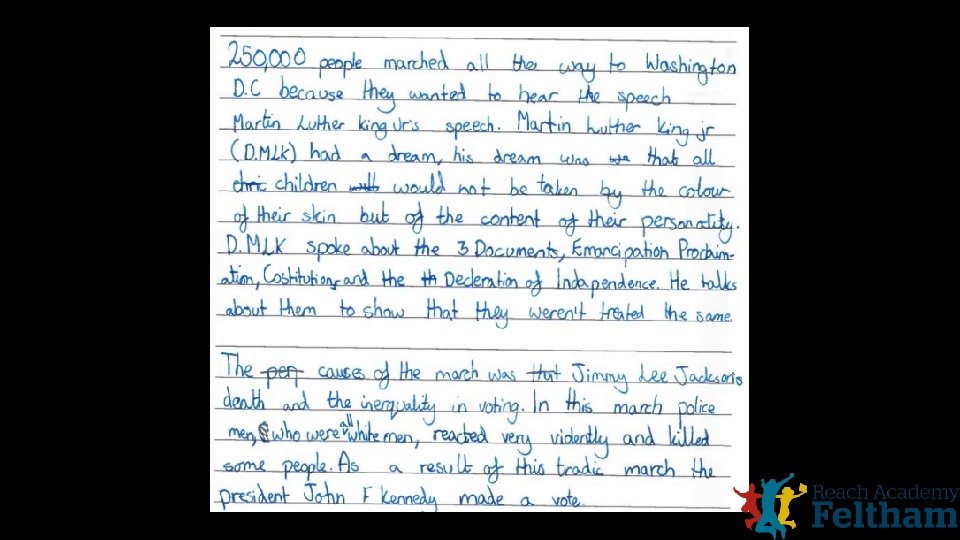 250,000 people marched all the way to Washington
D.C because they wanted to hear the speech
Martin Luther king Jr's speech. Martin Luther King jr
(D.MLK) had a dream, his dream was that all
children would not be taken by the colour
of their skin but of the content of their personality.
D.MLK spoke about the 3 Documents, Emancipation Proclaim-
ation, Costitution, and the Decleration of Independence. He talks
about them to show that they weren't treated the same.
The causes of the march was Jimmy Lee Jackson's
death and the inerquality in voting. In this march police
men, who were all white men, reacted very violently and killed
some people. As a result of this tradic march the
president John F Kennedy made a vote.
Reach Academy
Feltham